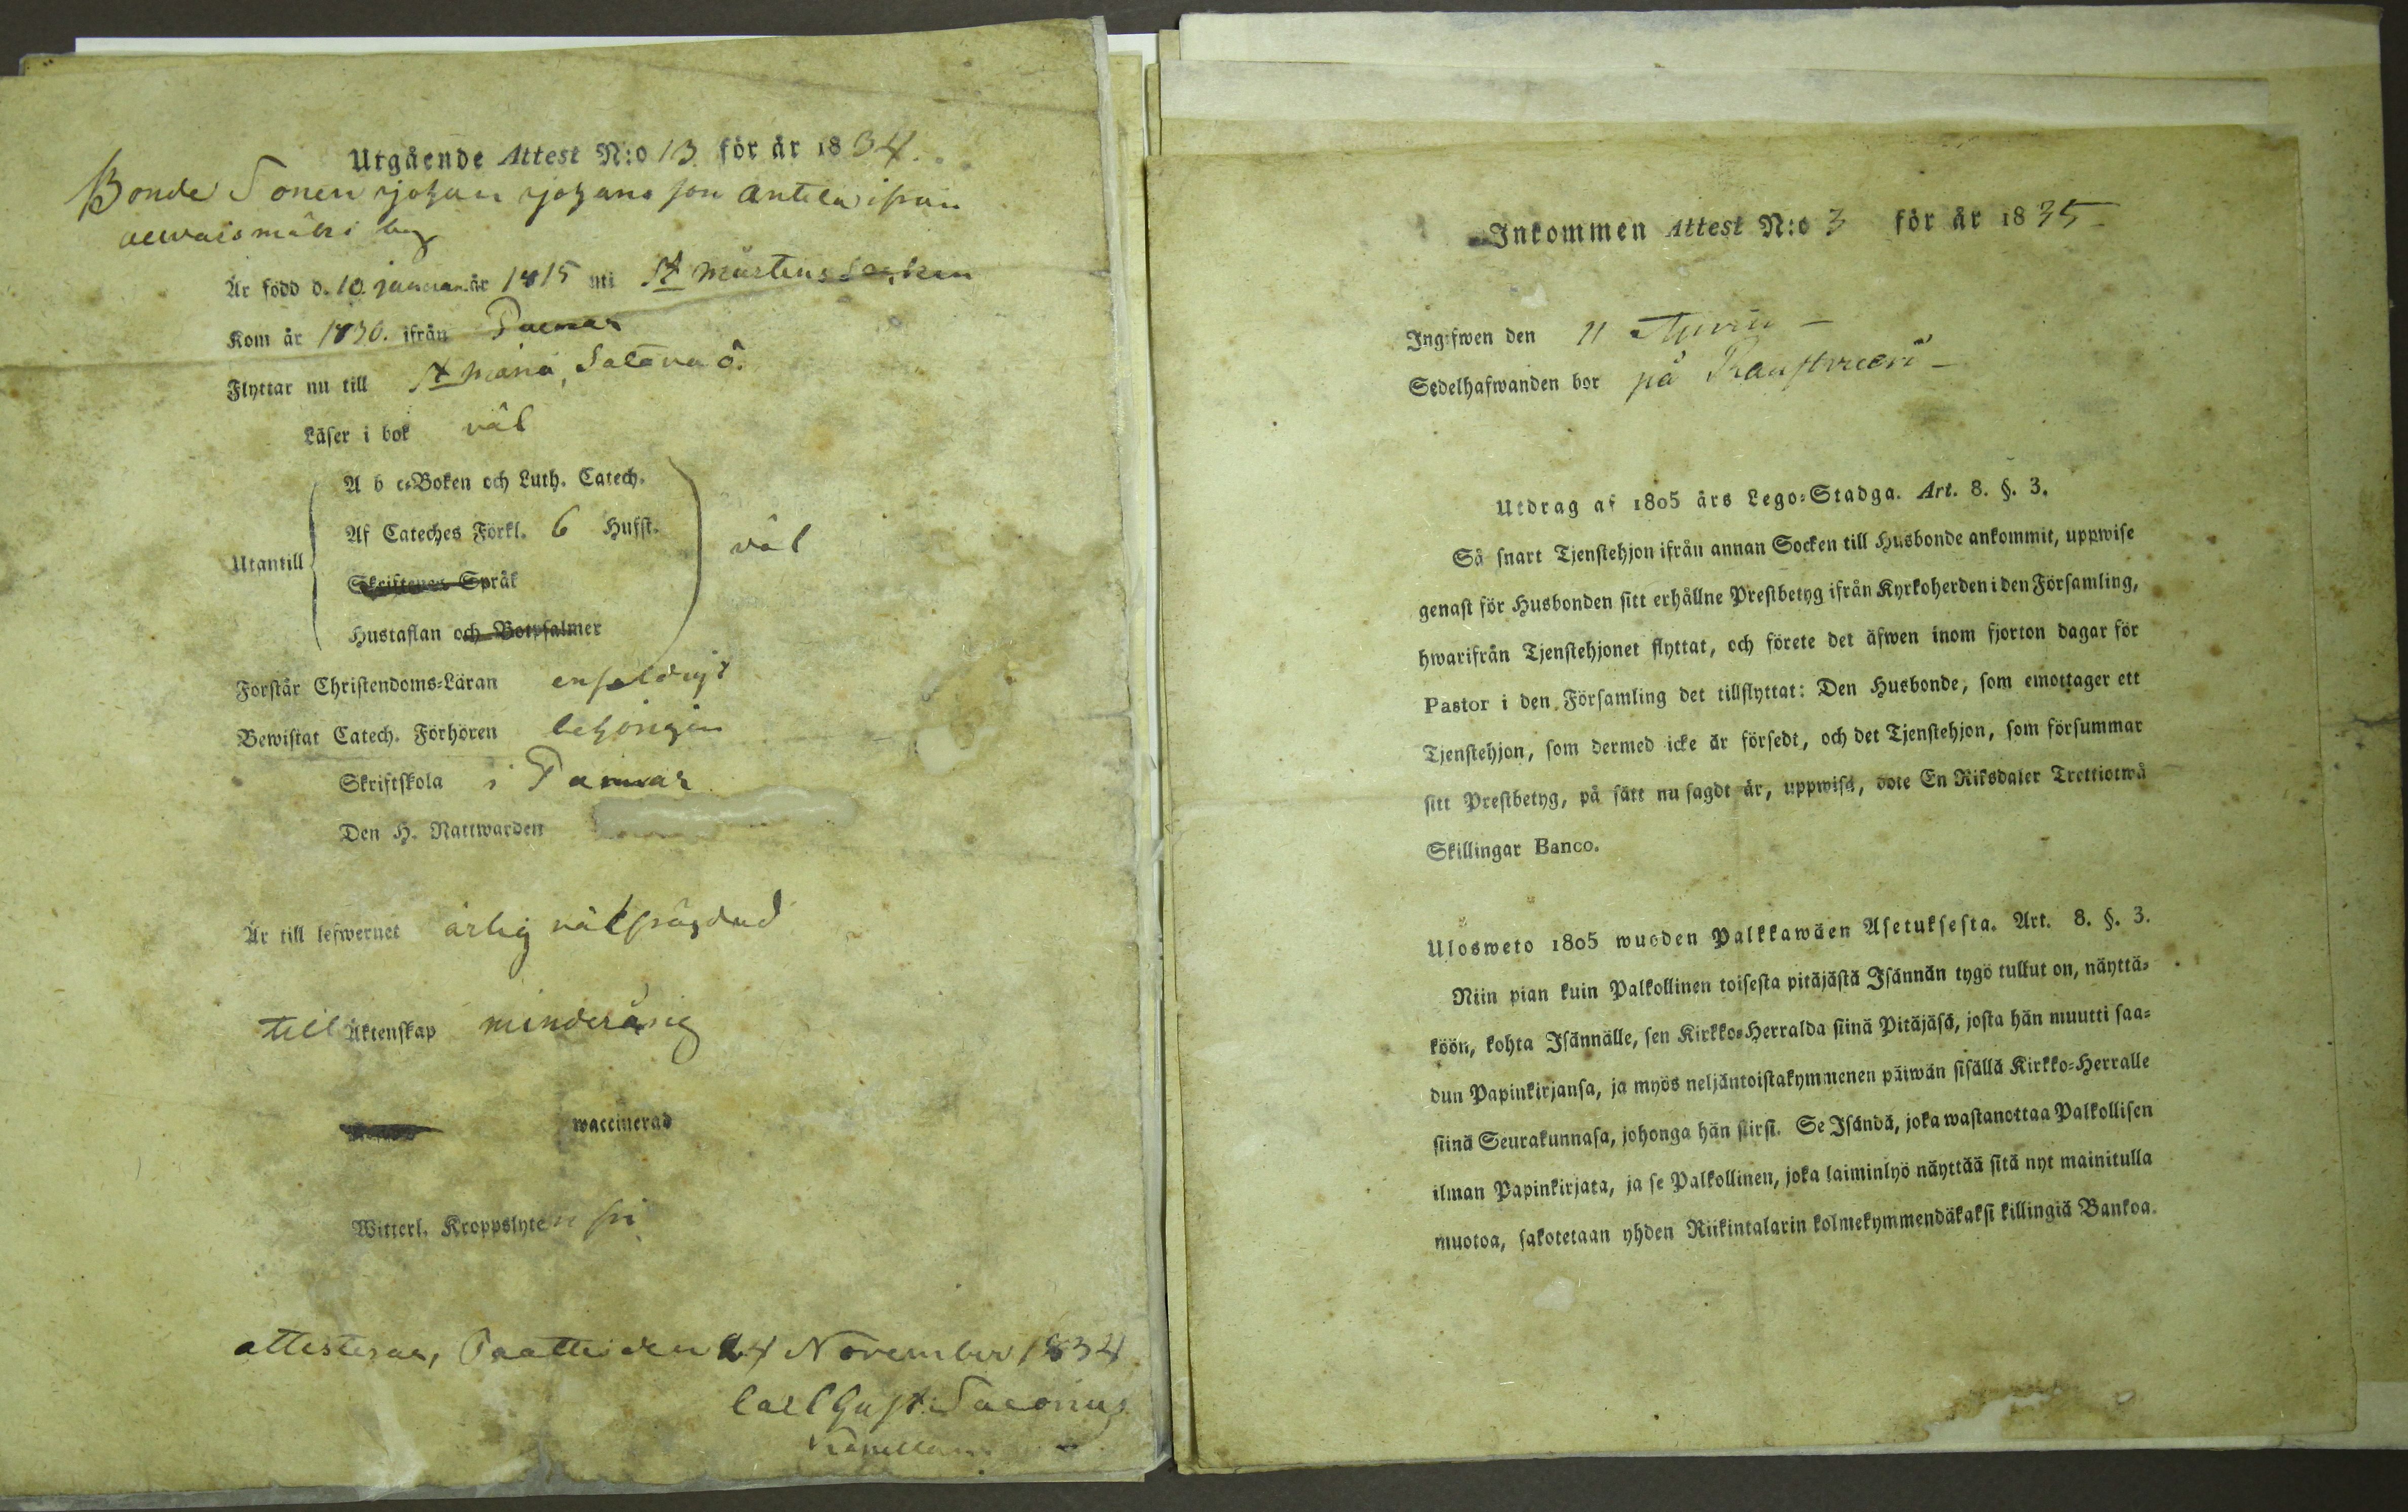 Utgående Attest N:o 13 för år 1834.
Bonde Sonen Johan Johans son Antila ifrån
by
Är född d. 10 januari år 1815 uti St Mårtens Socken
Kom år 1830. ifrån Pemar
Flyttar nu till St Maria, Satava ö.
Läser i bok väl
A b c-Boken och Luth. Catech.
Af Cateches Förkl. 6 Hufst.
Utantill väl
Skriftenes Språk
Hustaflan och Botpsalmer
Forstår Christendoms-Läran enfaldigt
Bewistat Catech. Förhören behörigen
Skriftskola i Pemar
Den H. Nattwarden
Är till lefwernet ärlig välfrägdad
till Äktenskap minderårig
waccinerad
Witterl. Kroppslyten fri
attesteras, Paattis den 24 November 1834
Carl Gust:
Kapellan
Inkommen Attest N:o 3 för år 1835
Ingifwen den 11
Sedelhafwanden bor på
Utdrag af 1805 års Lego-Stadga. Art. 8. §. 3.
Så snart Tjenstehjon ifrån annan Socken till Husbonde ankommit, uppwise
genast för Husbonden sitt erhållne Prestbetyg ifrån Kyrkoherden i den Församling,
hwarifrån Tjenstehjonet flyttat, och förete det äfwen inom fjorton dagar för
Pastor i den Församling det tillflyttat: Den Husbonde, som emottager ett
Tjenstehjon, som dermed icke är försedt, och det Tjenstehjon, som försummar
sitt Prestbetyg, på sätt nu sagdt är, uppwisa, bote En Riksdaler Trettiotwå
Skillingar Banco.
Ulosweto 1805 wuoden Palkkawäen Asetuksesta. Art. 8. §. 3.
Niin pian kuin Palkollinen toisesta pitäjästä Isännän tygö tullut on, näyttä-
köön, kohta Isännälle, sen Kirkko-Herralda siinä Pitäjäsä, josta hän muutti saa-
dun Papinkirjansa, ja myös neljäntoistakymmenen päiwän sisällä Kirkko-Herralle
siinä Seurakunnasa, johonga hän siirsi. Se Isändä, joka wastanottaa Palkollisen
ilman Papinkirjata, ja se Palkollinen, joka laiminlyö näyttää sitä nyt mainitulla
muotoa, sakotetaan yhden Riikintalarin kolmekymmendäkaksi killingiä Bankoa.